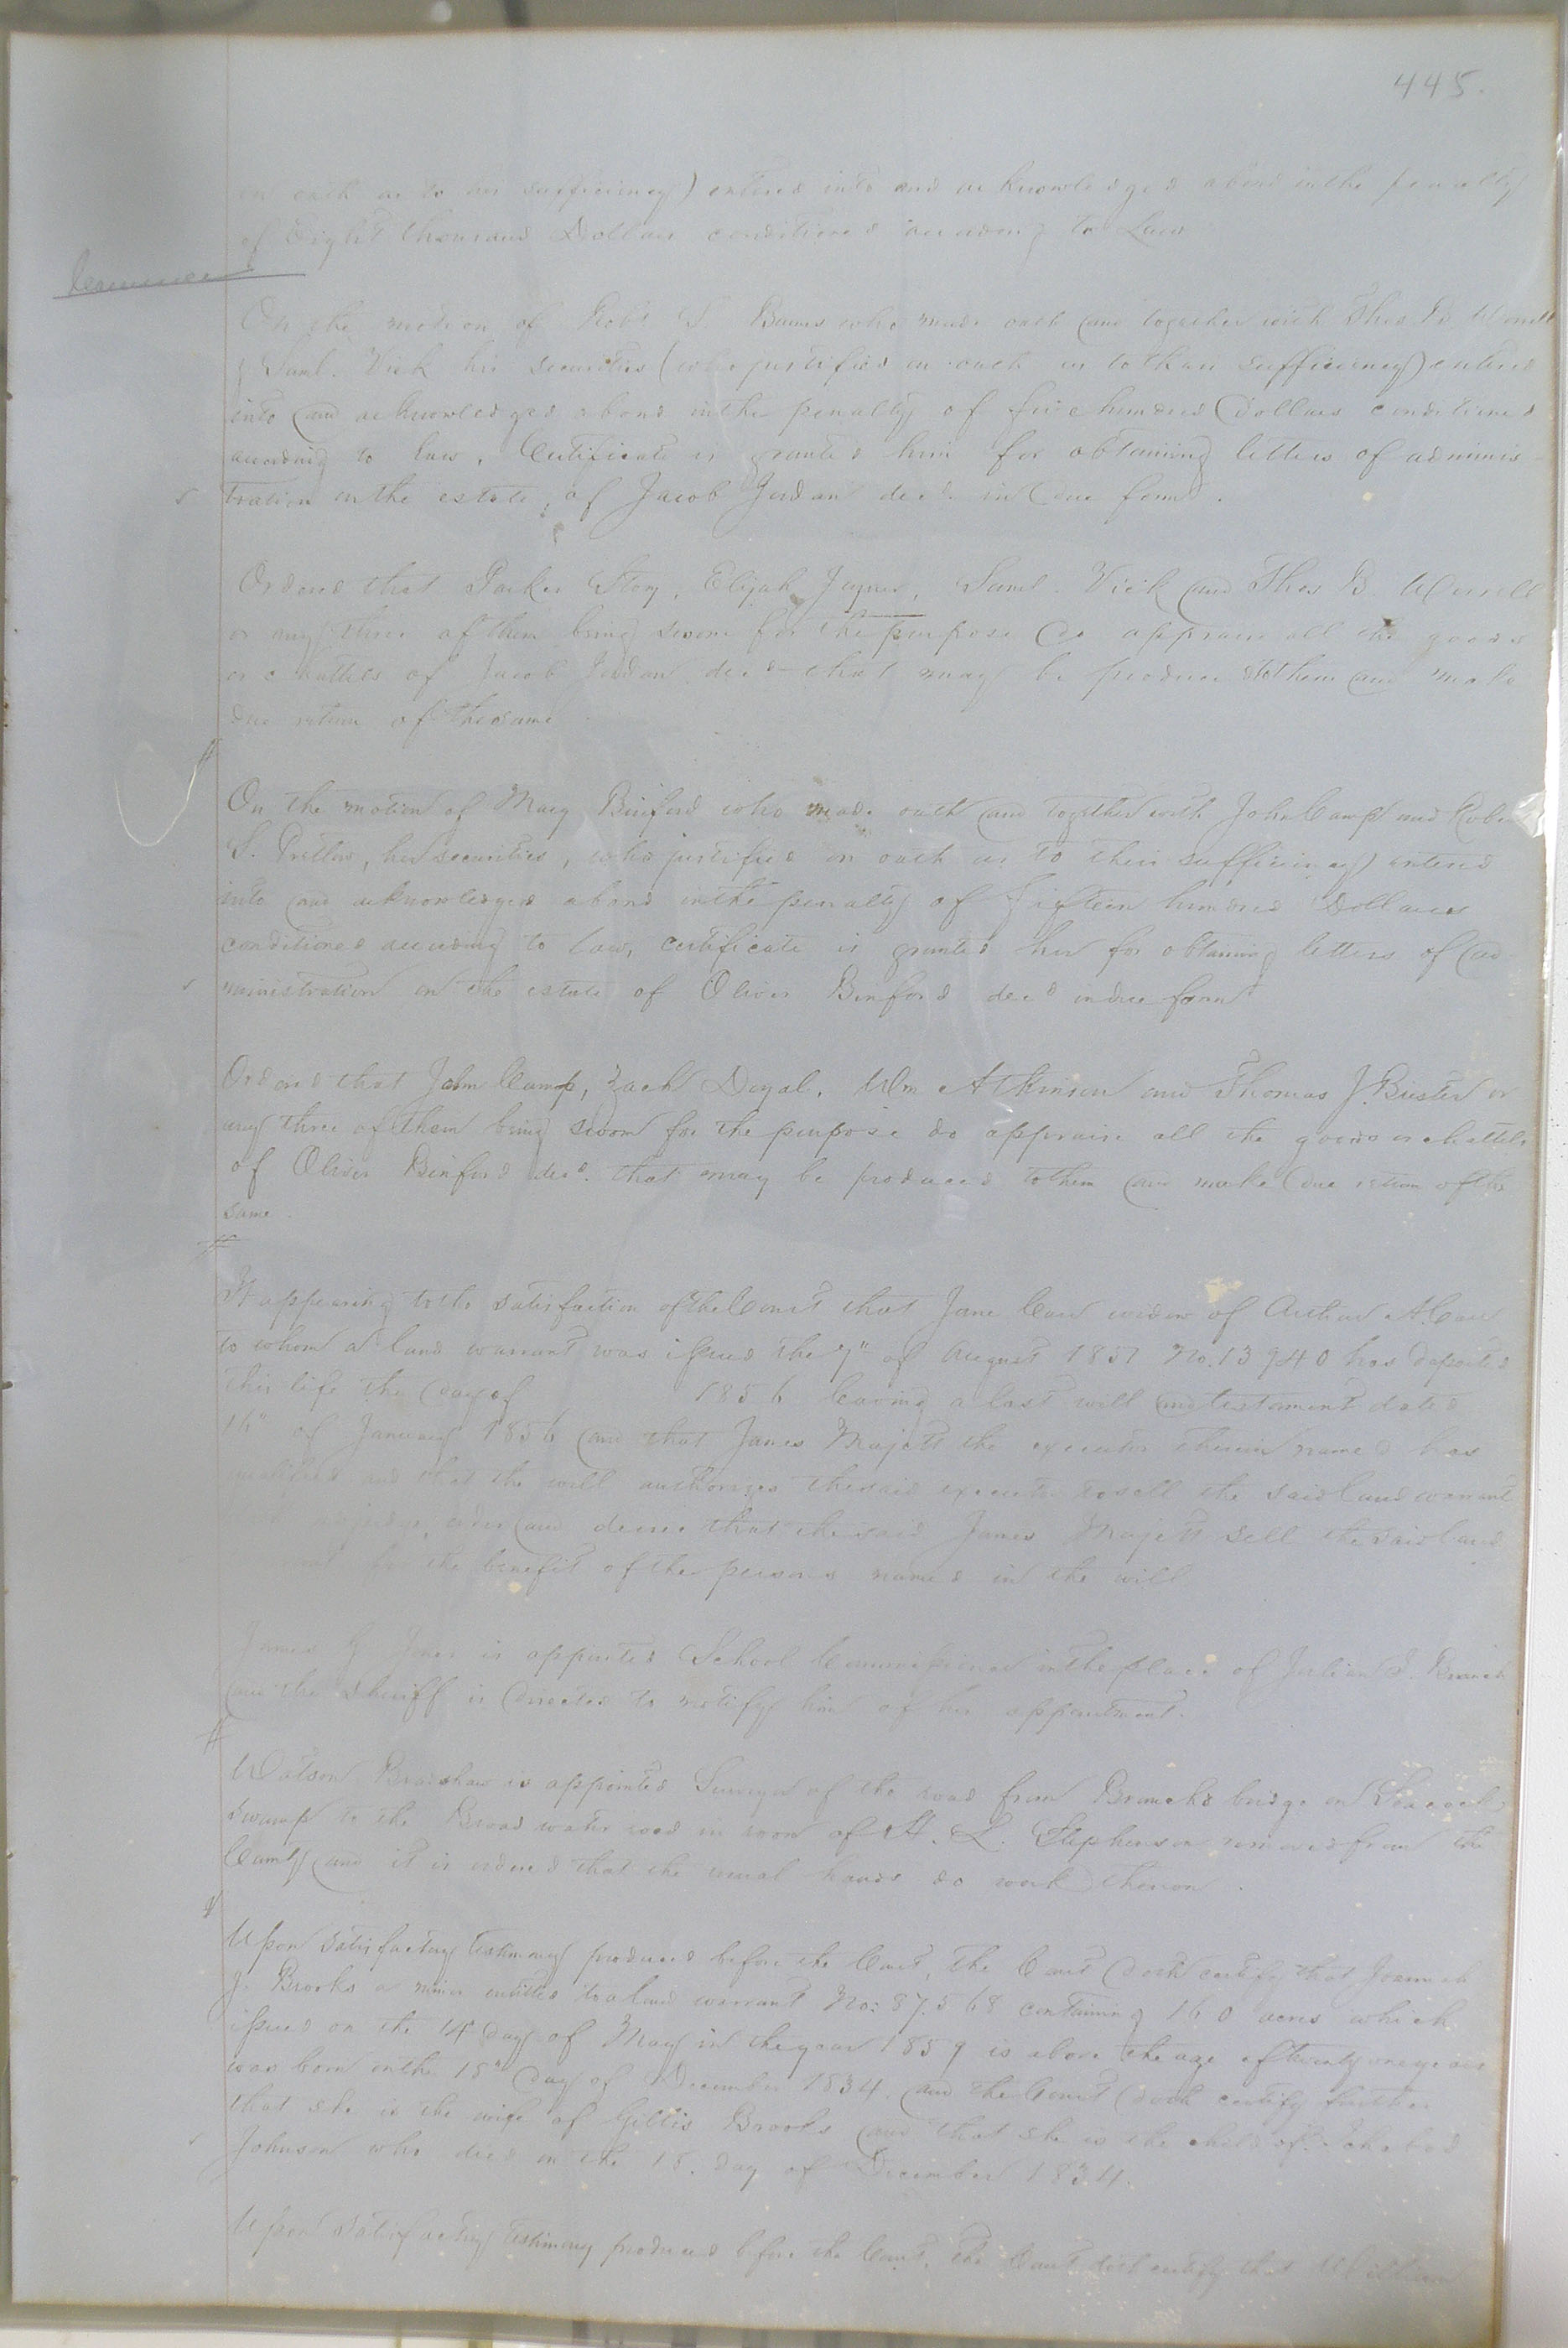 445.
on oath as to his sufficiency) entered into and acknowledged abond inthe penalty
of Eight thousand Dollars conditioned according to Law
On the motion of Robt S. Barnes who made oath and together with Thos B. Worrell
& Saml. Vick his securities (who justified on oath as to their sufficiency) entered
into and acknowledged abond inthe penalty of five hundred Dollars conditioned
according to law, Certificate is granted him for obtaining letters of adminis-
tration on the estate of Jacob Jordan decd. in due form.
Ordered that Parker Story, Elijah Joyner, Saml. Vick and Thos B. Worrell
or any three of them being sworn for the purpose do appraise all the goods
or chattles of Jacob Jordan decd that may be produced tothem and make
due return of thesame
On the motion of Mary Binford who made oath and together with John Camp and Rob
S. Pretlow, her securities, who justified on oath as to their sufficiency) entered
into and acknowledged abond inthe penalty of fifteen hundred Dollars
conditioned according to law, certificate is granted her for obtaining letters of ad
ministration on the estate of Oliver Binford decd indue form
Ordered that John Camp, Zach Doyal, Wm Atkinson and Thomas J. or
any three of them being sworn for the purpose do appraise all the goods or chattels
of Oliver Binford decd. that may be produced tothem and make due return ofthe
same.
It appearing tothe satisfaction ofthe Court that Jane Carr widow of Arthur A. Carr
to whom a land warrant was issued the 7" of August 1851 No. 13940 has departed
this life the day of 1856 leaving a last will and testament dated
16" of January 1856 and that James Majett the executor therein named has
qualified and that the will authorizes thesaid executor tosell the said land warrant
order and decree that thesaid James Majett sell the said land
for the benefit of the persons named in the will
James G Jones is appointed School Commissioner inthe place of Julian J. Branch
and the Sheriff is directed to notify him of his appointment.
Watson Bradshaw is appointed Surveyor of the road from Branch's bridge on Seacock
swamp to the Broad water road in room of H. L. Stephenson removed from the
County and it is ordered that the usual hands do work thereon.
Upon satisfactory testimony produced before the Court, the Court doth certify that
J. Brooks a minor entitled toaland warrant No: 87.568 containing 160 acres which
issued on the 14 day of May in theyear 1859 is above the age oftwentyoneyears
was born onthe 18" day of December 1834. and the Court doth certify further
that she is the wife of Gillis Brooks and that she is the child of
Johnson who died on the 18. day of December 1834.
Upon satisfactory testimony produced before the Court, the Court doth certify that William